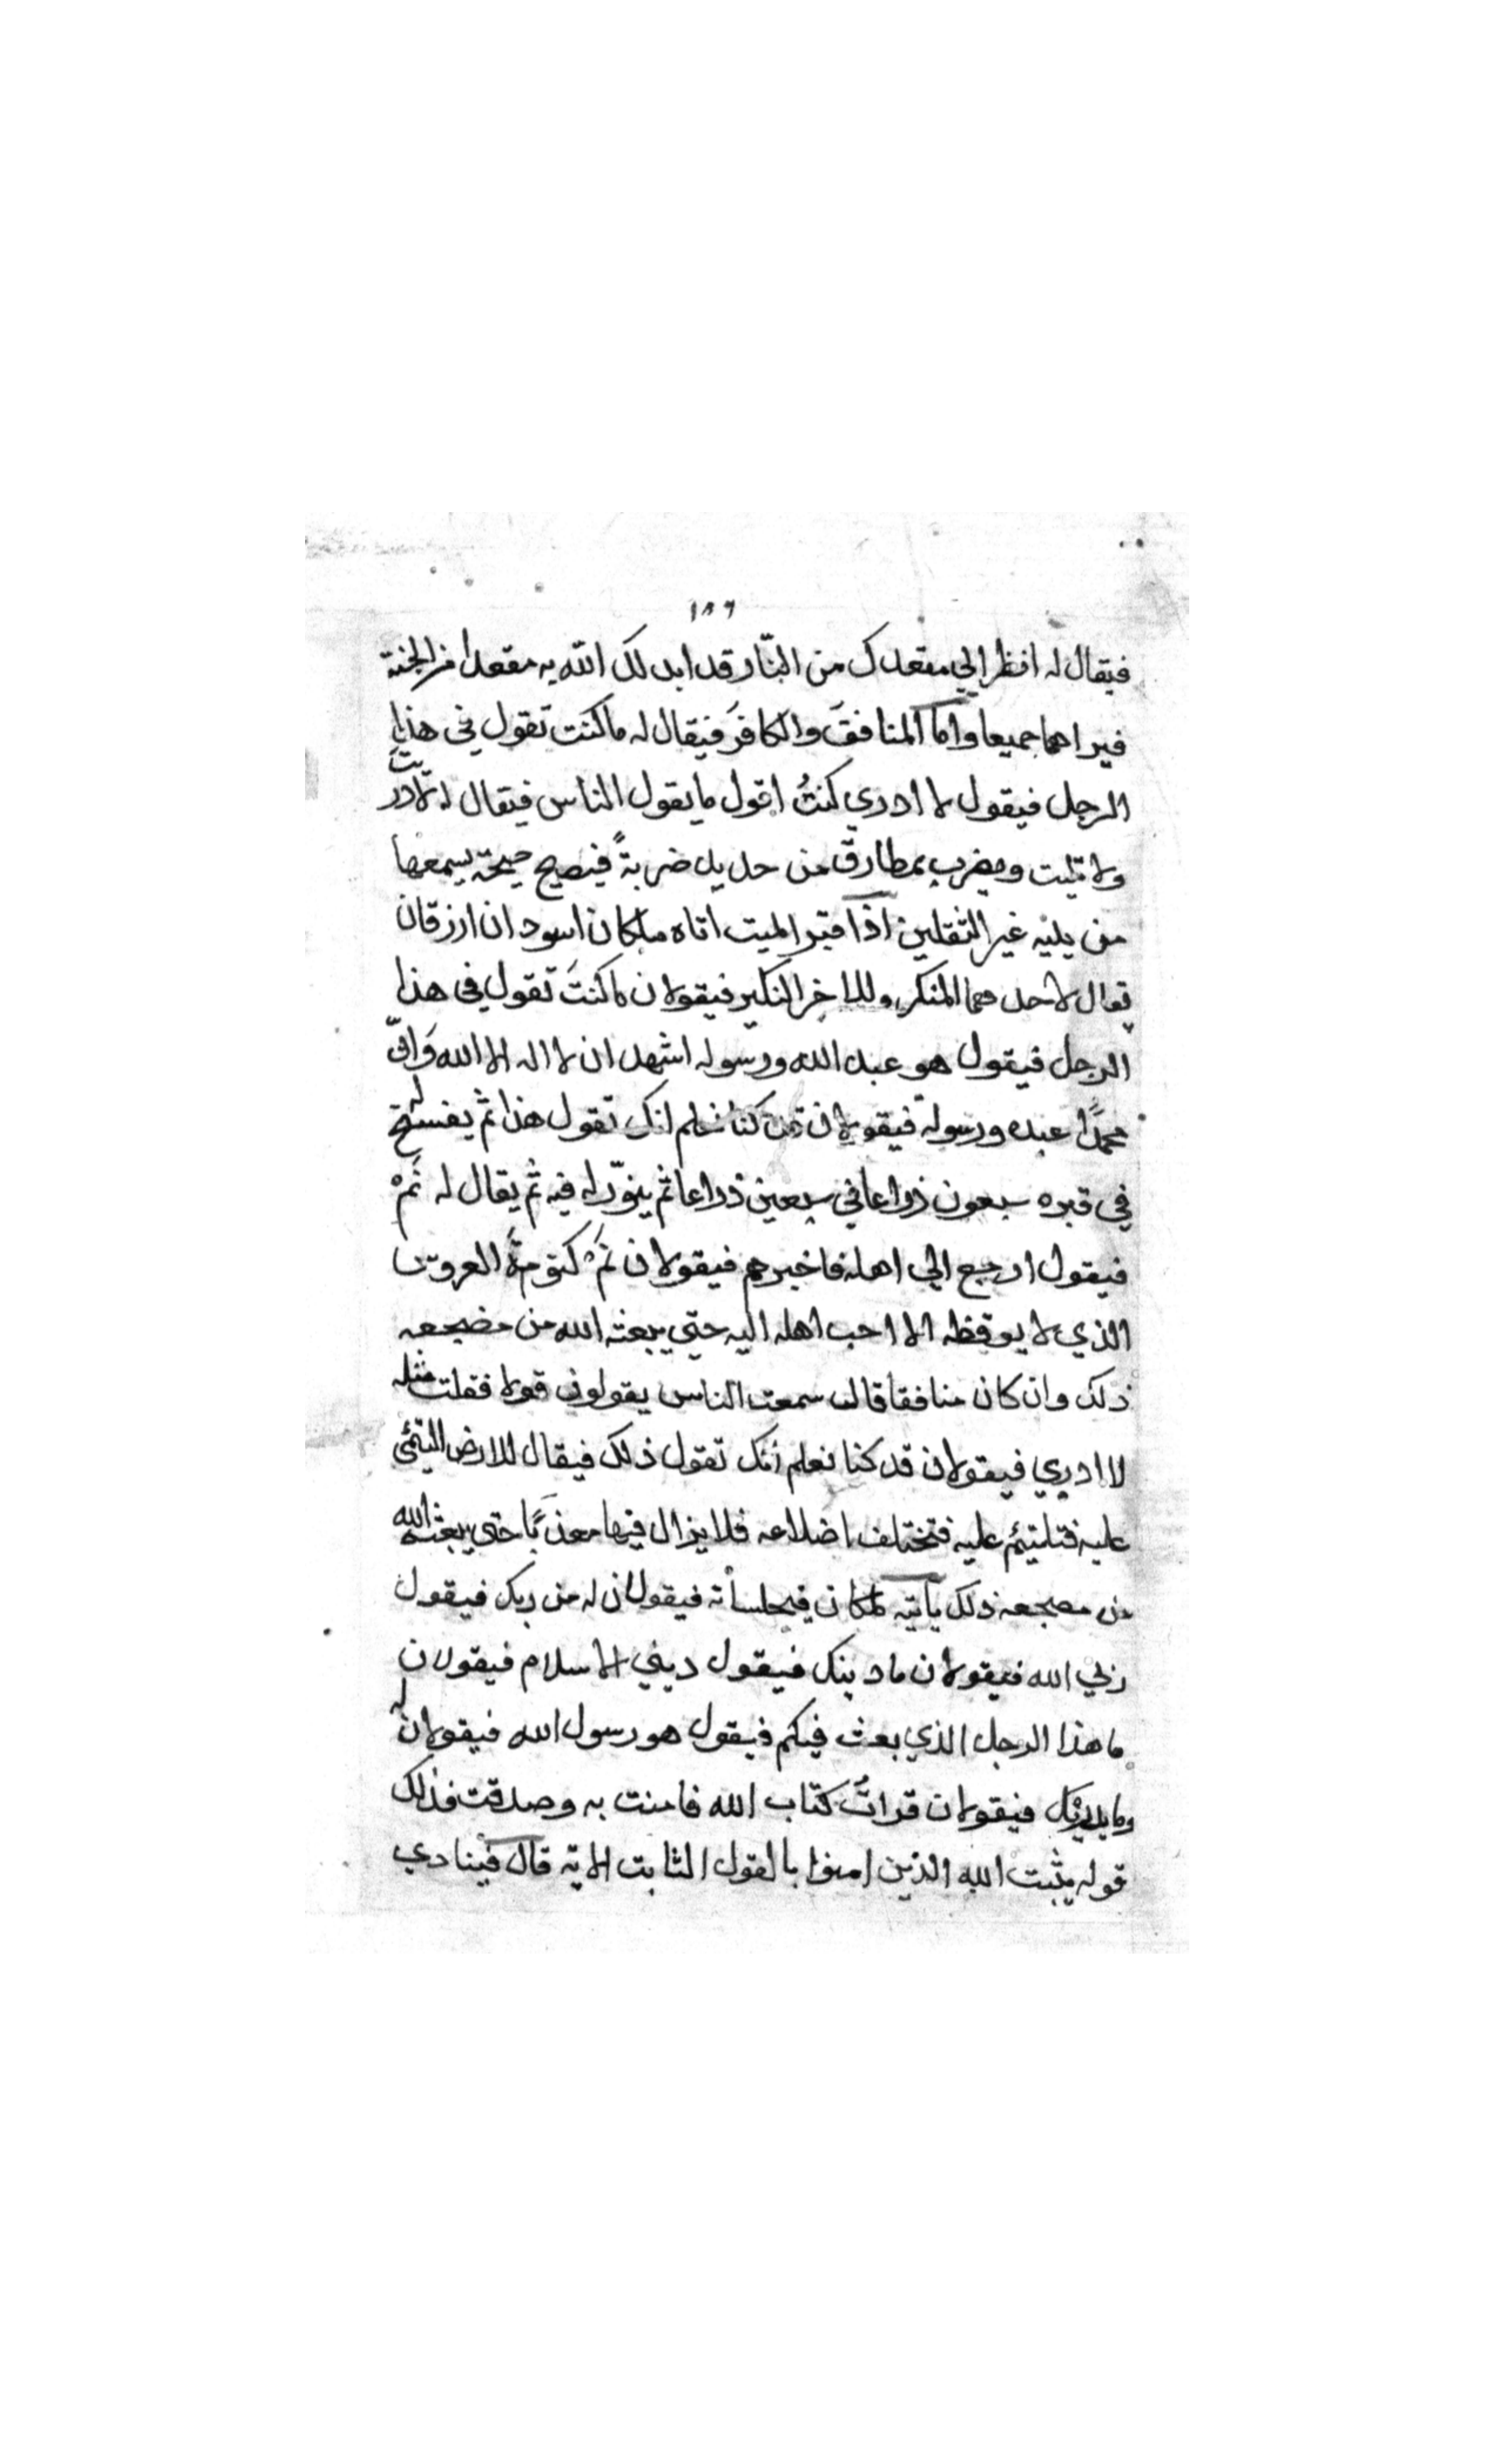 ١٨٦
فيقال له انظر الي مقعدك من النّار قد ابدلك الله به مقعدا من الجنة
فيراهما جميعا واما المنافقَ والكافرَ فيقال له ما كنت تقول في هذا
الرجل فيقول لا ادري كنتُ اقول ما يقول الناس فيقال له لا دريتَ
ولا تليت ويضرب بمطارق من حديد ضربةً فيصيح صيحة يسمعها
من يليه غير الثقلين اذا قبر الميت اتاه ملكان اسودان ازرقان
يقال لاحدهما المنكر وللاخر النكير فيقولان ما كنتَ تقول في هذا
الرجل فيقول هو عبد الله ورسوله اشهد ان لا اله الا الله وَانّ
محمدًا عبده ورسوله فيقولان قد كنا نعلم انك تقول هذا ثم يفسح له
في قبره سبعون ذراعا في سبعين ذراعا ثم ينوّر له فيه ثم يقال له نَمْ
فيقول ارجع الي اهله فاخبرهم فيقولان نَمْ كنومةِ العروس
الذي لا يوقظه الا احب اهله اليه حتي يبعثه الله من مضجعه
ذلك وان كان منافقا قال سمعت الناس يقولون قولا فقلت مثله
لا ادري فيقولان قد كنا نعلم أنك تقول ذلك فيقال للارض التئمي
عليه فتلتئم عليه فتختلف اضلاعه فلا يزال فيها معذبًا حتي يبعثه الله
من مضجعه ذلك يأتيه ملكان فيجلسانه فيقولان له من ربك فيقول
ربي الله فيقولان ما دينك فيقول ديني الاسلام فيقولان
ما هذا الرجل الذي بعث فيكم فيقول هو رسول الله فيقولان له
وما يدريك فيقولان قراتُ كتاب الله فامنت به وصدقت فذلك
قوله يثبت الله الذين امنوا بالقول الثابت الاية قال فينادي